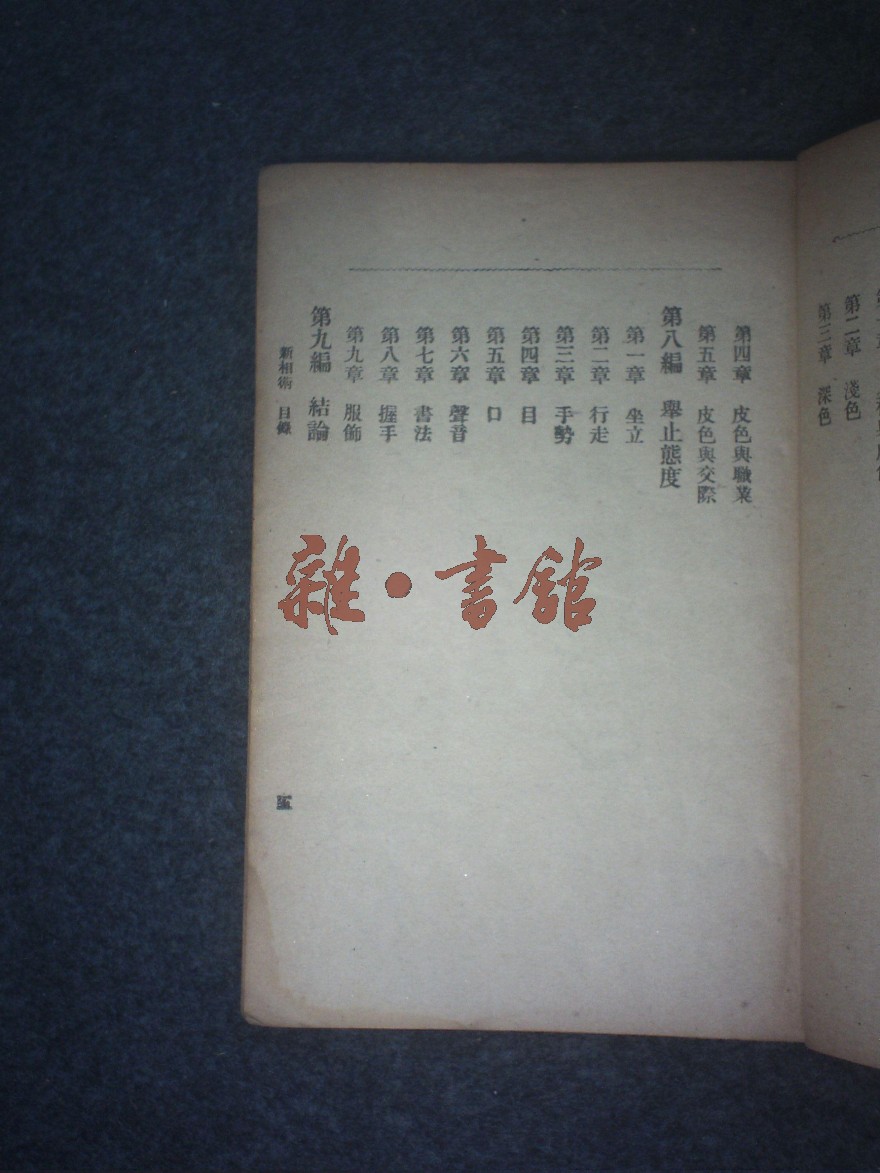 第二章　淺色
第三章　深色
第四章　皮色與職業
第五章　皮色與交際
第八編　舉止態度
第一章　坐立
第二章　行走
第三章　手勢
第四章　目
第五章　口
第六章　聲音
第七章　書法
第八章　握手
第九章　服飾
第九編　結論
新相術　目錄
五
雜·書館